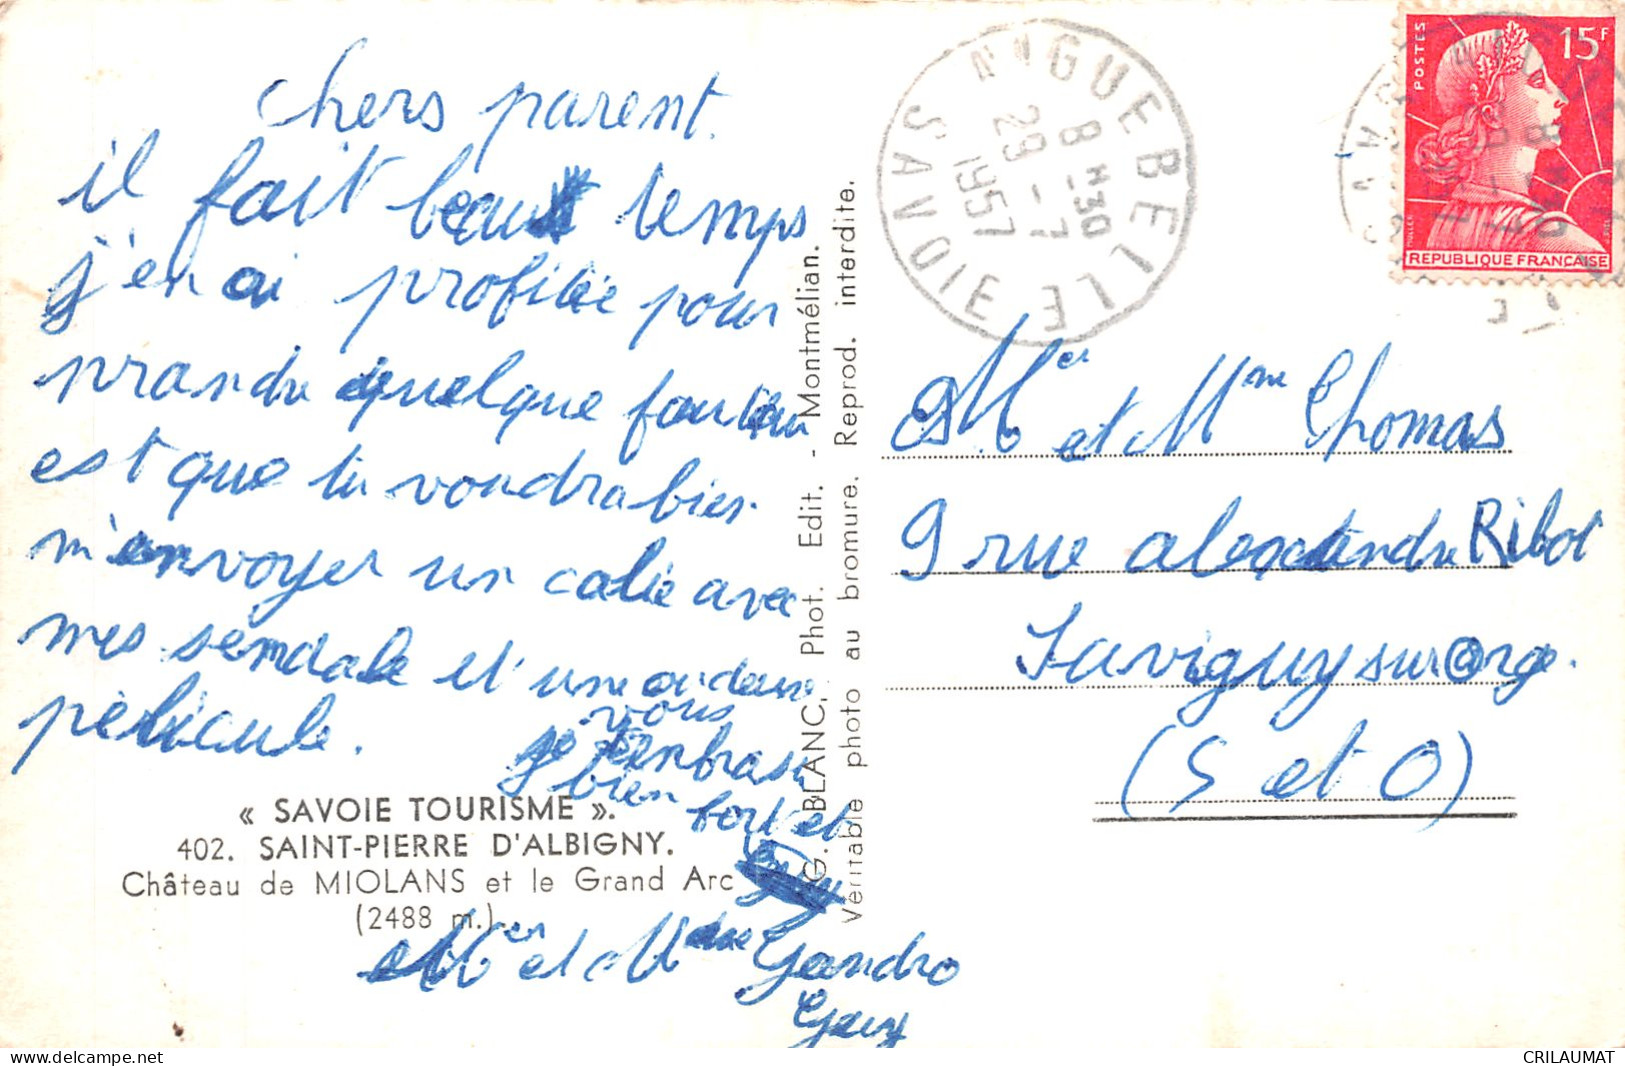 chers parent.
il fait beau temps
j'en ai profitée pour
prandre quelque
est que tu voudra bien
m'envoyer un colie avec
mes sendale et une ou deux
pélicule.
vous
je t'enbrasse
bien fort et
Mer et Mme Gandro
Guy
« SAVOIE TOURISME ».
402. SAINT-PIERRE D'ALBIGNY.
Château de MIOLANS et le Grand Arc
(2488 m.)
G. BLANC, Phot. Edit. - Montmélian.
Véritable photo au bromure. Reprod. interdite.
AIGUEBELLE
8 H30
29 - 7
1957
SAVOIE
POSTES
15F
REPUBLIQUE FRANÇAISE
Mer et Mme Thomas
9 rue alexandre Ribot
Savigny sur Orge.
(S et O)
delcampe.net
CRILAUMAT